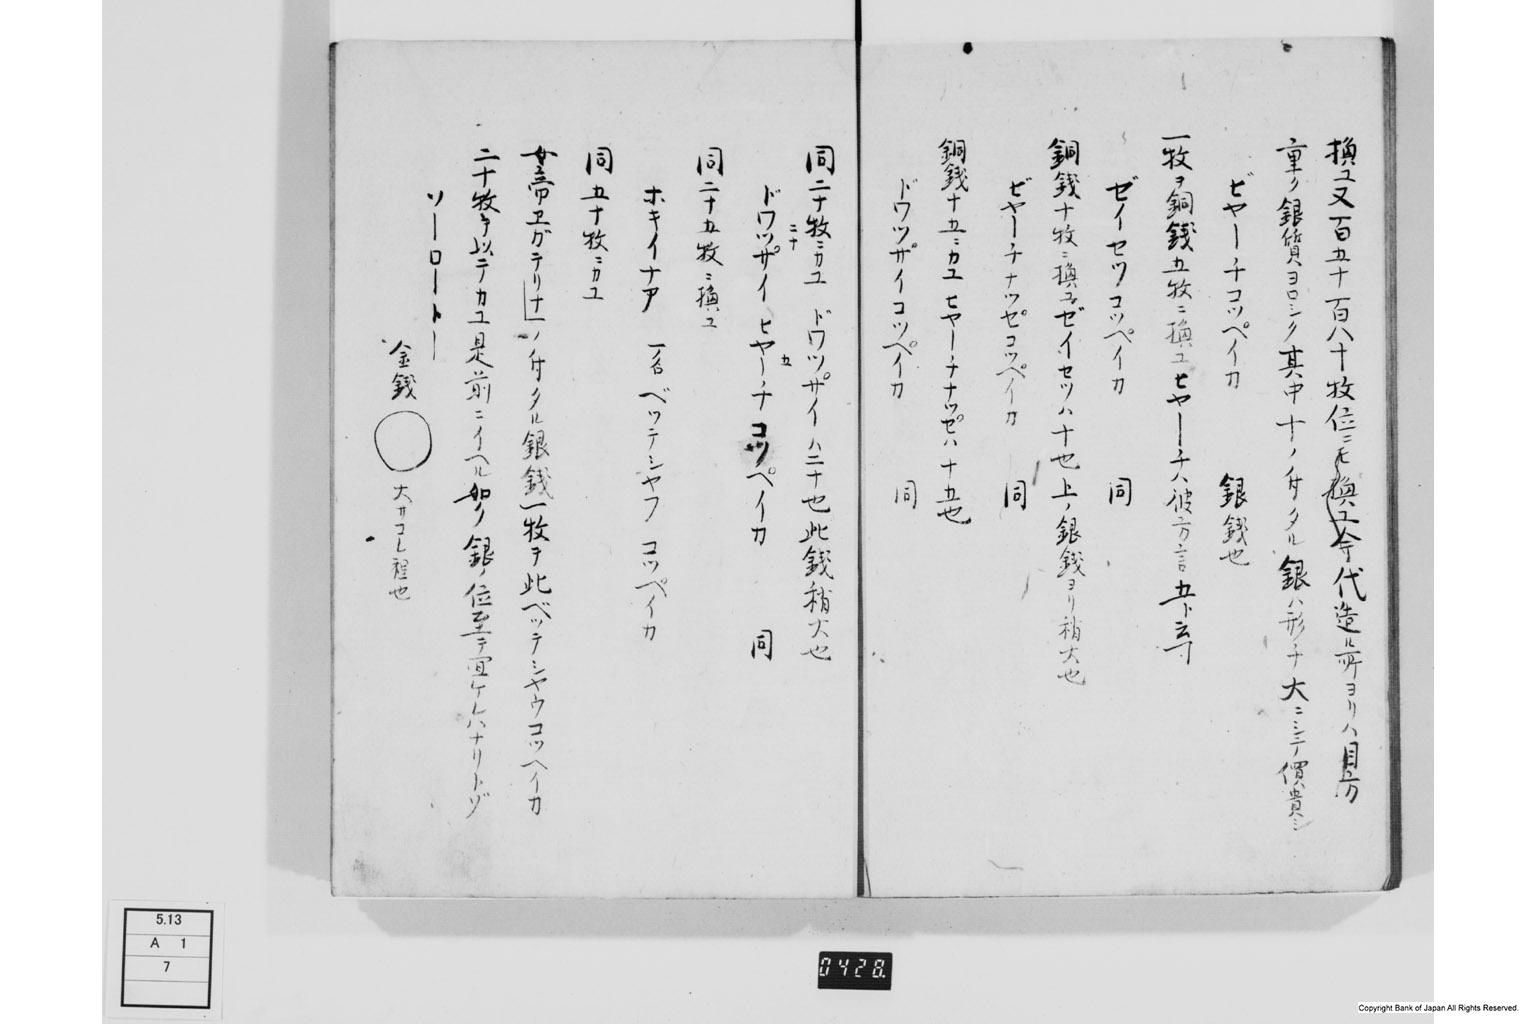 換ユ又百五十百八十牧位ニモ換ユ今代造ル所ヨリハ目方
重ク銀質ヨロシク其中十ノ付タル銀ハ形チ大ニシテ價貴シ
ビヤーチコツペイカ 銀銭也
一牧ヲ銅銭五牧ニ換ユヒヤーチハ彼方言五ト云フ
ゼイセツコツペイカ 同
銅銭十牧ニ換ユゼイセツハ十也上ノ銀銭ヨリ稍大也
ビヤーチナツゼコツペイカ 同
銅銭十五ニカユヒヤーチナツゼハ十五也
ドワツザイコツペイカ 同
同二十牧ニカユ ドワツザイハ二十也此銭稍大也
ドワツザイ ヒヤーチ コツペイカ 同
二十 五
同二十五牧ニ換ユ
ホキイナア 一名ベツテシヤフ コツペイカ
同五十牧ニカユ
女帝ヱガテリナノ付タル銀銭一牧ヲ此ベツテシヤウコツヘイカ
二十牧ヲ以テカユ是前ニイヘル如ク銀ノ位至テ宜ケレハナリトゾ
ソーロートー
金銭 大サコレ程也
5.13
A 1
7
0428.
Copyright Bank of Japan All Rights Reserved.